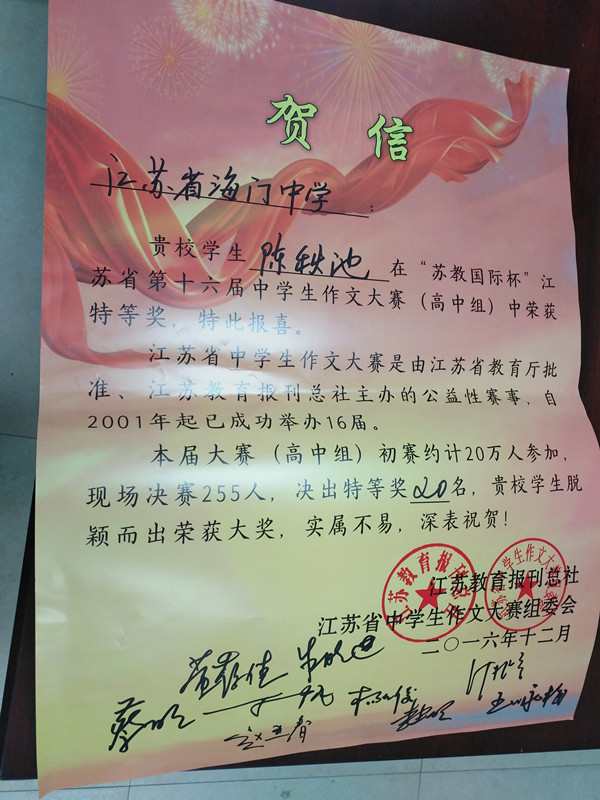 贺信
江苏省海门中学：
贵校学生陈轶池在“苏教国际杯”江
苏省第十六届中学生作文大赛（高中组）中荣获
特等奖，特此报喜。
江苏省中学生作文大赛是由江苏省教育厅批
准、江苏教育报刊总社主办的公益性赛事，自
2001年起已成功举办16届。
本届大赛（高中组）初赛约计20万人参加，
现场决赛255人，决出特等奖20名，贵校学生脱
颖而出荣获大奖，实属不易，深表祝贺！
江苏教育报刊总社
江苏省中学生作文大赛组委会
二〇一六年十二月
蔡明